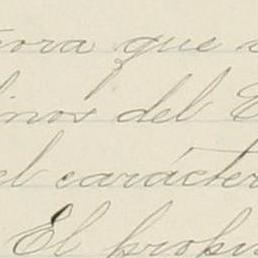 ora que s
inos del E
el carácter
El propi